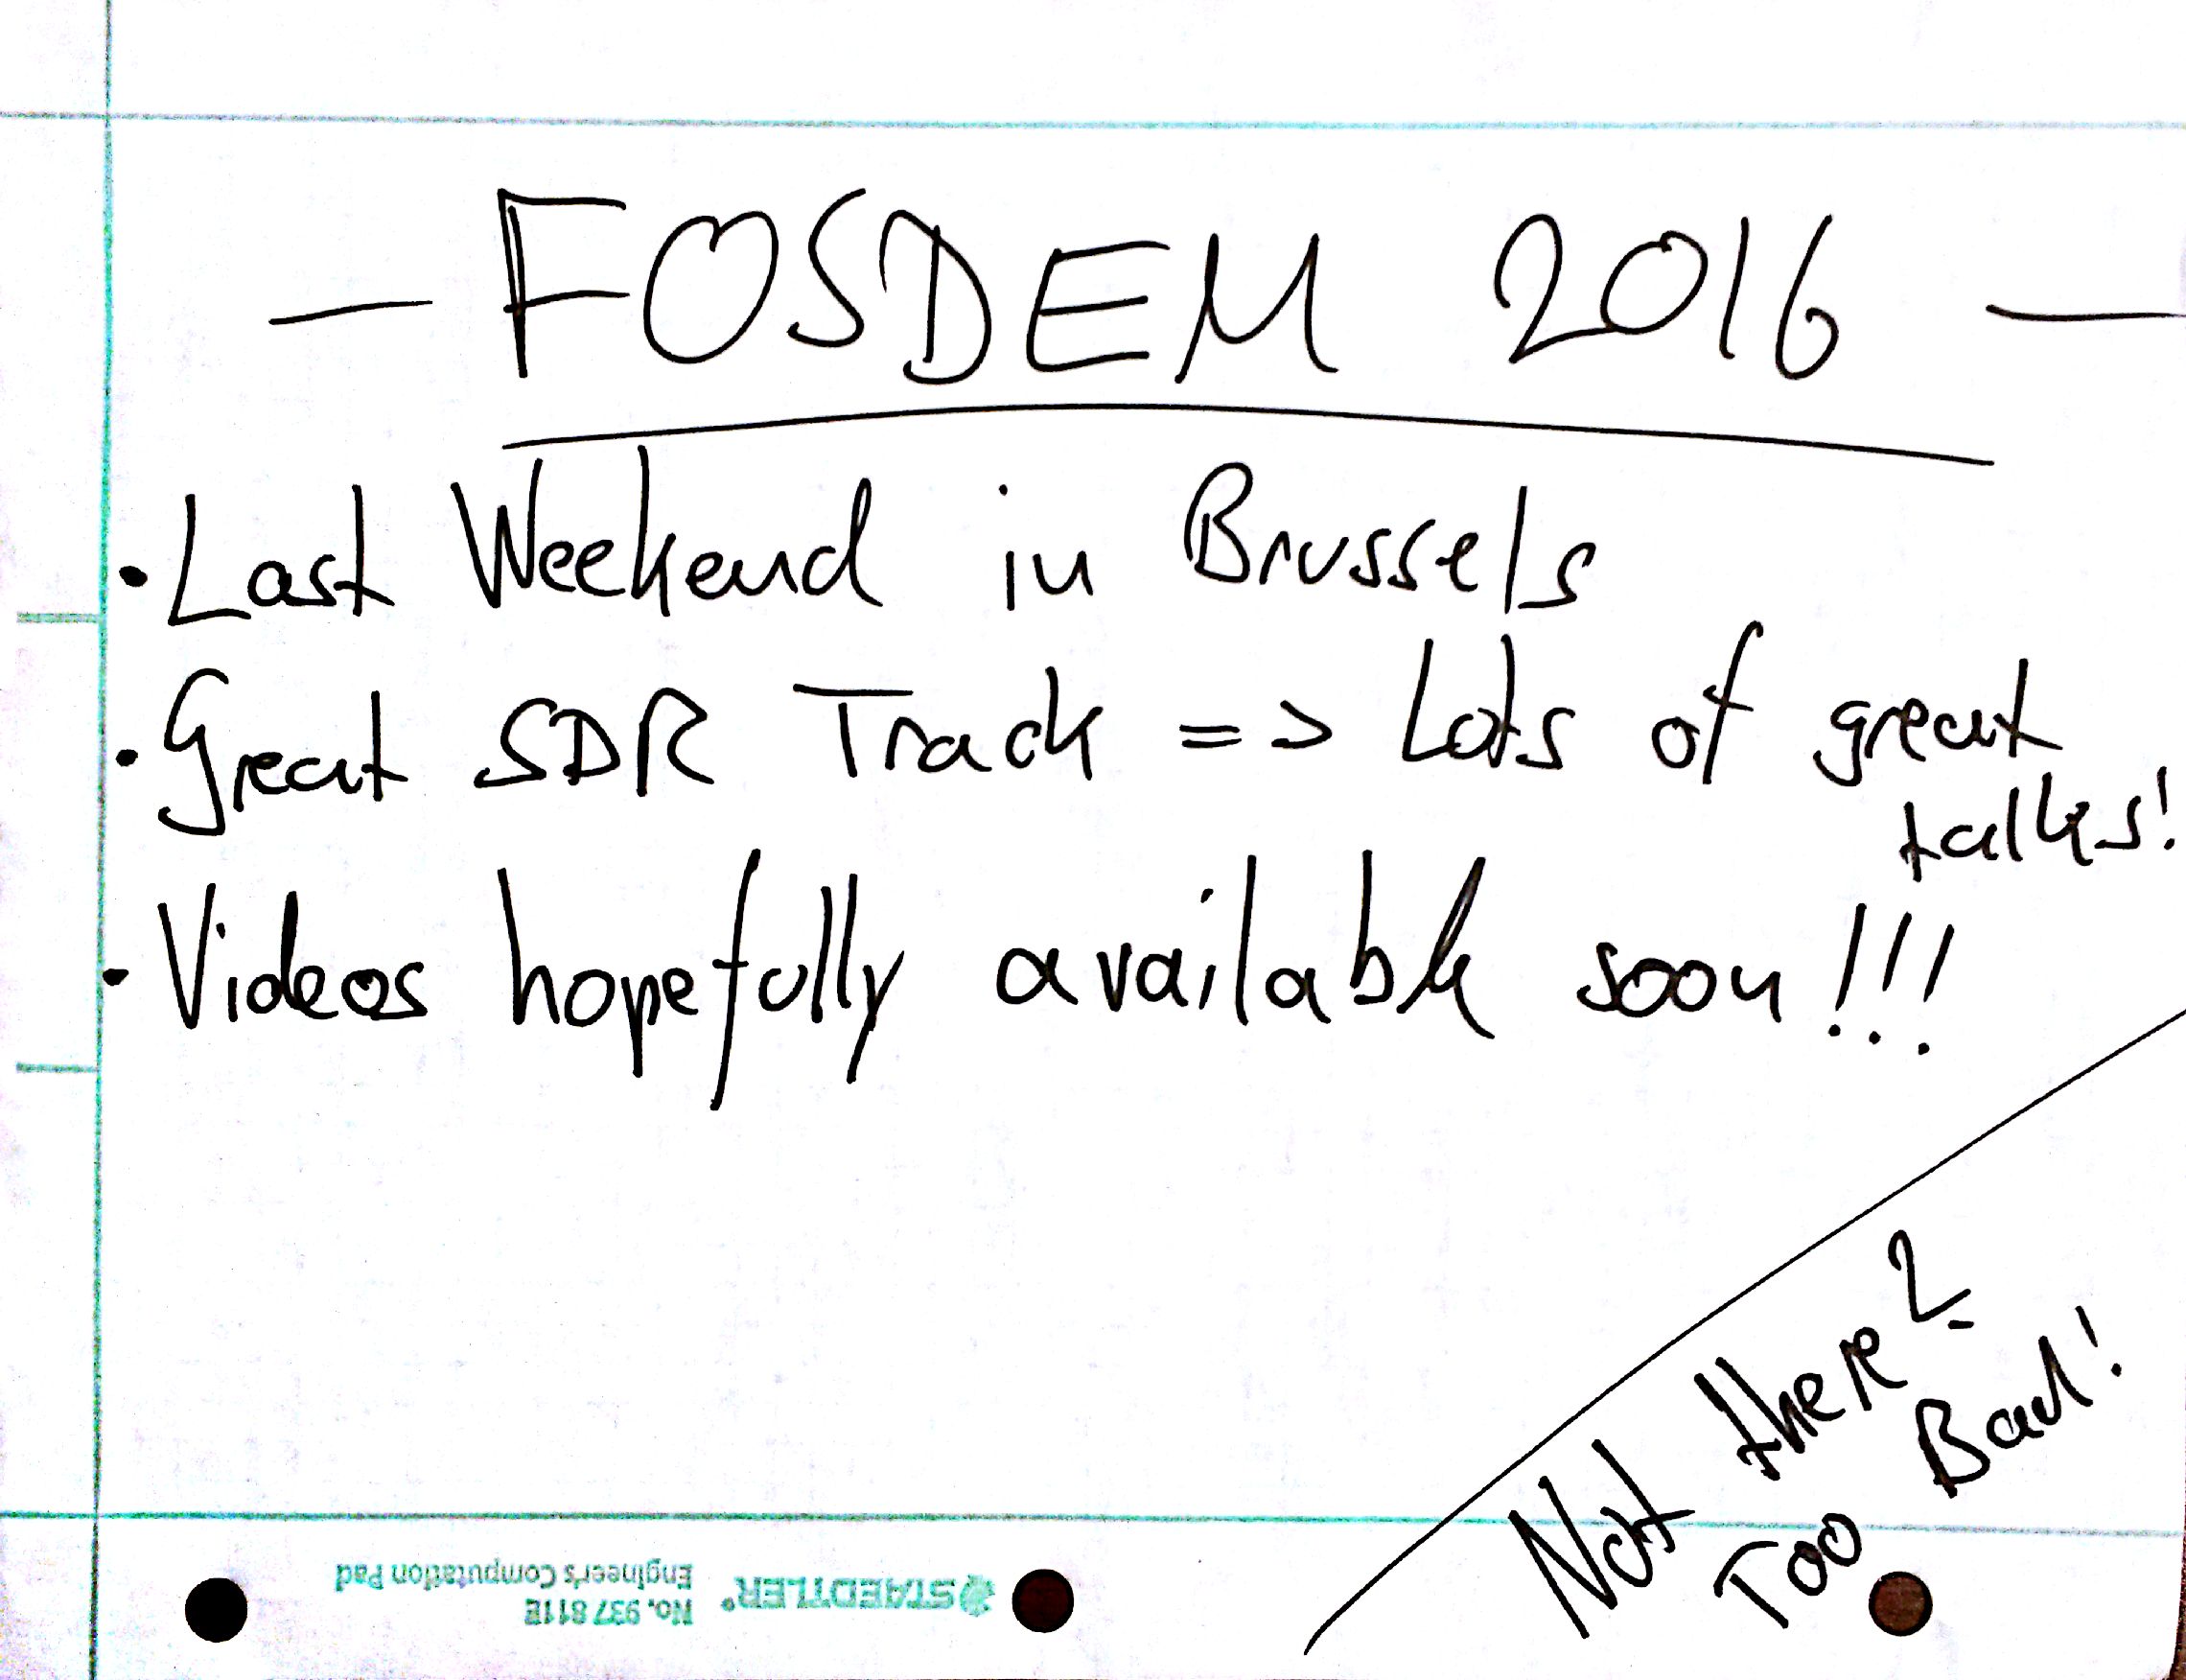 — FOSDEM 2016 —
• Last Weekend in Brussels
• Great SDR Track => Lots of great
talks!
• Videos hopefully available soon!!!
Not there?
Too Bad!
STAEDTLER®
No. 937 811E
Engineer's Computation Pad